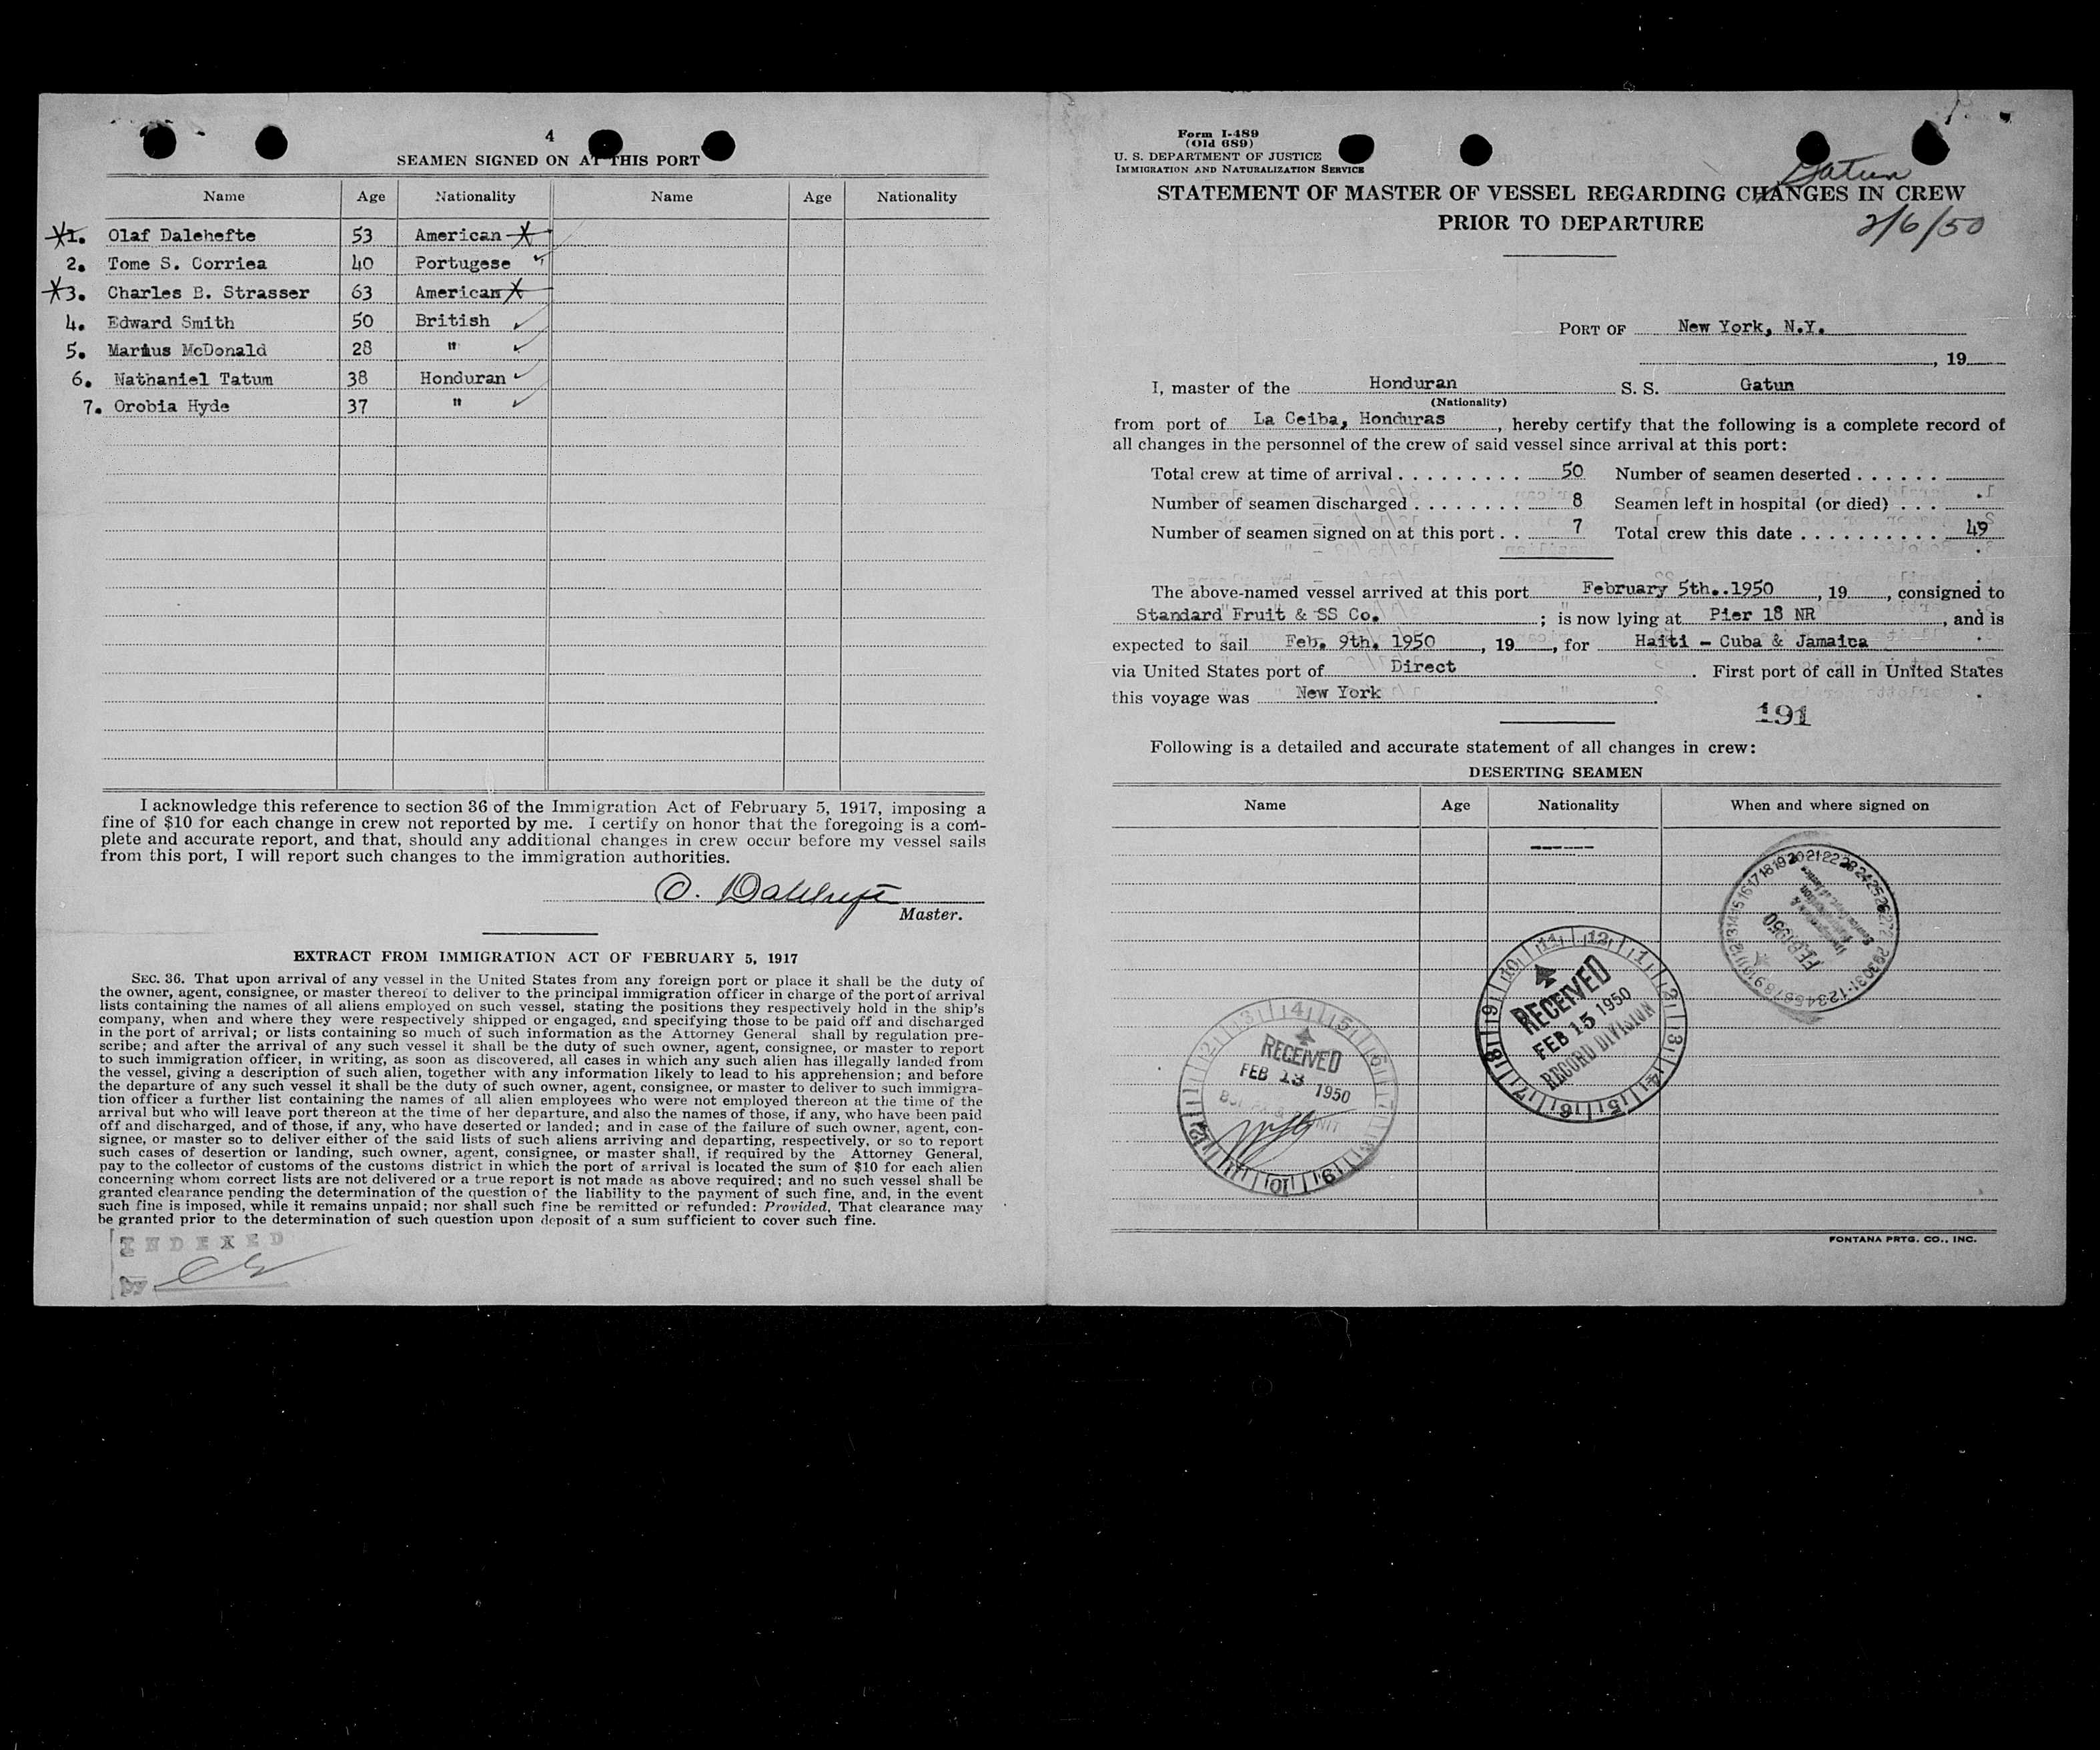 4
SEAMEN SIGNED ON AT THIS PORT
Name Age Nationality Name Age Nationality
1. Olaf Dalehefte 53 American
2. Tome S. Corriea 40 Portugese
3. Charles B. Strasser 63 American
4. Edward Smith 50 British
5. Marius McDonald 28 "
6. Nathaniel Tatum 38 Honduran
7. Orobia Hyde 37 "
I acknowledge this reference to section 36 of the Immigration Act of February 5, 1917, imposing a
fine of $10 for each change in crew not reported by me. I certify on honor that the foregoing is a com-
plete and accurate report, and that, should any additional changes in crew occur before my vessel sails
from this port, I will report such changes to the immigration authorities.
O. Dalehefte
Master.
EXTRACT FROM IMMIGRATION ACT OF FEBRUARY 5, 1917
SEC. 36. That upon arrival of any vessel in the United States from any foreign port or place it shall be the duty of
the owner, agent, consignee, or master thereof to deliver to the principal immigration officer in charge of the port of arrival
lists containing the names of all aliens employed on such vessel, stating the positions they respectively hold in the ship's
company, when and where they were respectively shipped or engaged, and specifying those to be paid off and discharged
in the port of arrival; or lists containing so much of such information as the Attorney General shall by regulation pre-
scribe; and after the arrival of any such vessel it shall be the duty of such owner, agent, consignee, or master to report
to such immigration officer, in writing, as soon as discovered, all cases in which any such alien has illegally landed from
the vessel, giving a description of such alien, together with any information likely to lead to his apprehension; and before
the departure of any such vessel it shall be the duty of such owner, agent, consignee, or master to deliver to such immigra-
tion officer a further list containing the names of all alien employees who were not employed thereon at the time of the
arrival but who will leave port thereon at the time of her departure, and also the names of those, if any, who have been paid
off and discharged, and of those, if any, who have deserted or landed; and in case of the failure of such owner, agent, con-
signee, or master so to deliver either of the said lists of such aliens arriving and departing, respectively, or so to report
such cases of desertion or landing, such owner, agent, consignee, or master shall, if required by the Attorney General,
pay to the collector of customs of the customs district in which the port of arrival is located the sum of $10 for each alien
concerning whom correct lists are not delivered or a true report is not made as above required; and no such vessel shall be
granted clearance pending the determination of the question of the liability to the payment of such fine, and, in the event
such fine is imposed, while it remains unpaid; nor shall such fine be remitted or refunded: Provided, That clearance may
be granted prior to the determination of such question upon deposit of a sum sufficient to cover such fine.
INDEXED
By
Form I-489
(Old 689)
U. S. DEPARTMENT OF JUSTICE
IMMIGRATION AND NATURALIZATION SERVICE
Gatun
STATEMENT OF MASTER OF VESSEL REGARDING CHANGES IN CREW
PRIOR TO DEPARTURE
2/6/50
PORT OF New York, N.Y.
, 19
I, master of the Honduran S. S. Gatun
(Nationality)
from port of La Ceiba, Honduras, hereby certify that the following is a complete record of
all changes in the personnel of the crew of said vessel since arrival at this port:
Total crew at time of arrival . . . . . . . . . 50 Number of seamen deserted . . . . . .
Number of seamen discharged . . . . . . . . 8 Seamen left in hospital (or died) . . .
Number of seamen signed on at this port . . 7 Total crew this date . . . . . . . . . . 49
The above-named vessel arrived at this port February 5th..1950, 19, consigned to
Standard Fruit & SS Co. ; is now lying at Pier 18 NR, and is
expected to sail Feb. 9th. 1950, 19, for Haiti - Cuba & Jamaica
via United States port of Direct. First port of call in United States
this voyage was New York.
191
Following is a detailed and accurate statement of all changes in crew:
DESERTING SEAMEN
Name Age Nationality When and where signed on
------
RECEIVED
FEB 15 1950
RECORD DIVISION
RECEIVED
FEB 13 1950
FONTANA PRTG. CO., INC.